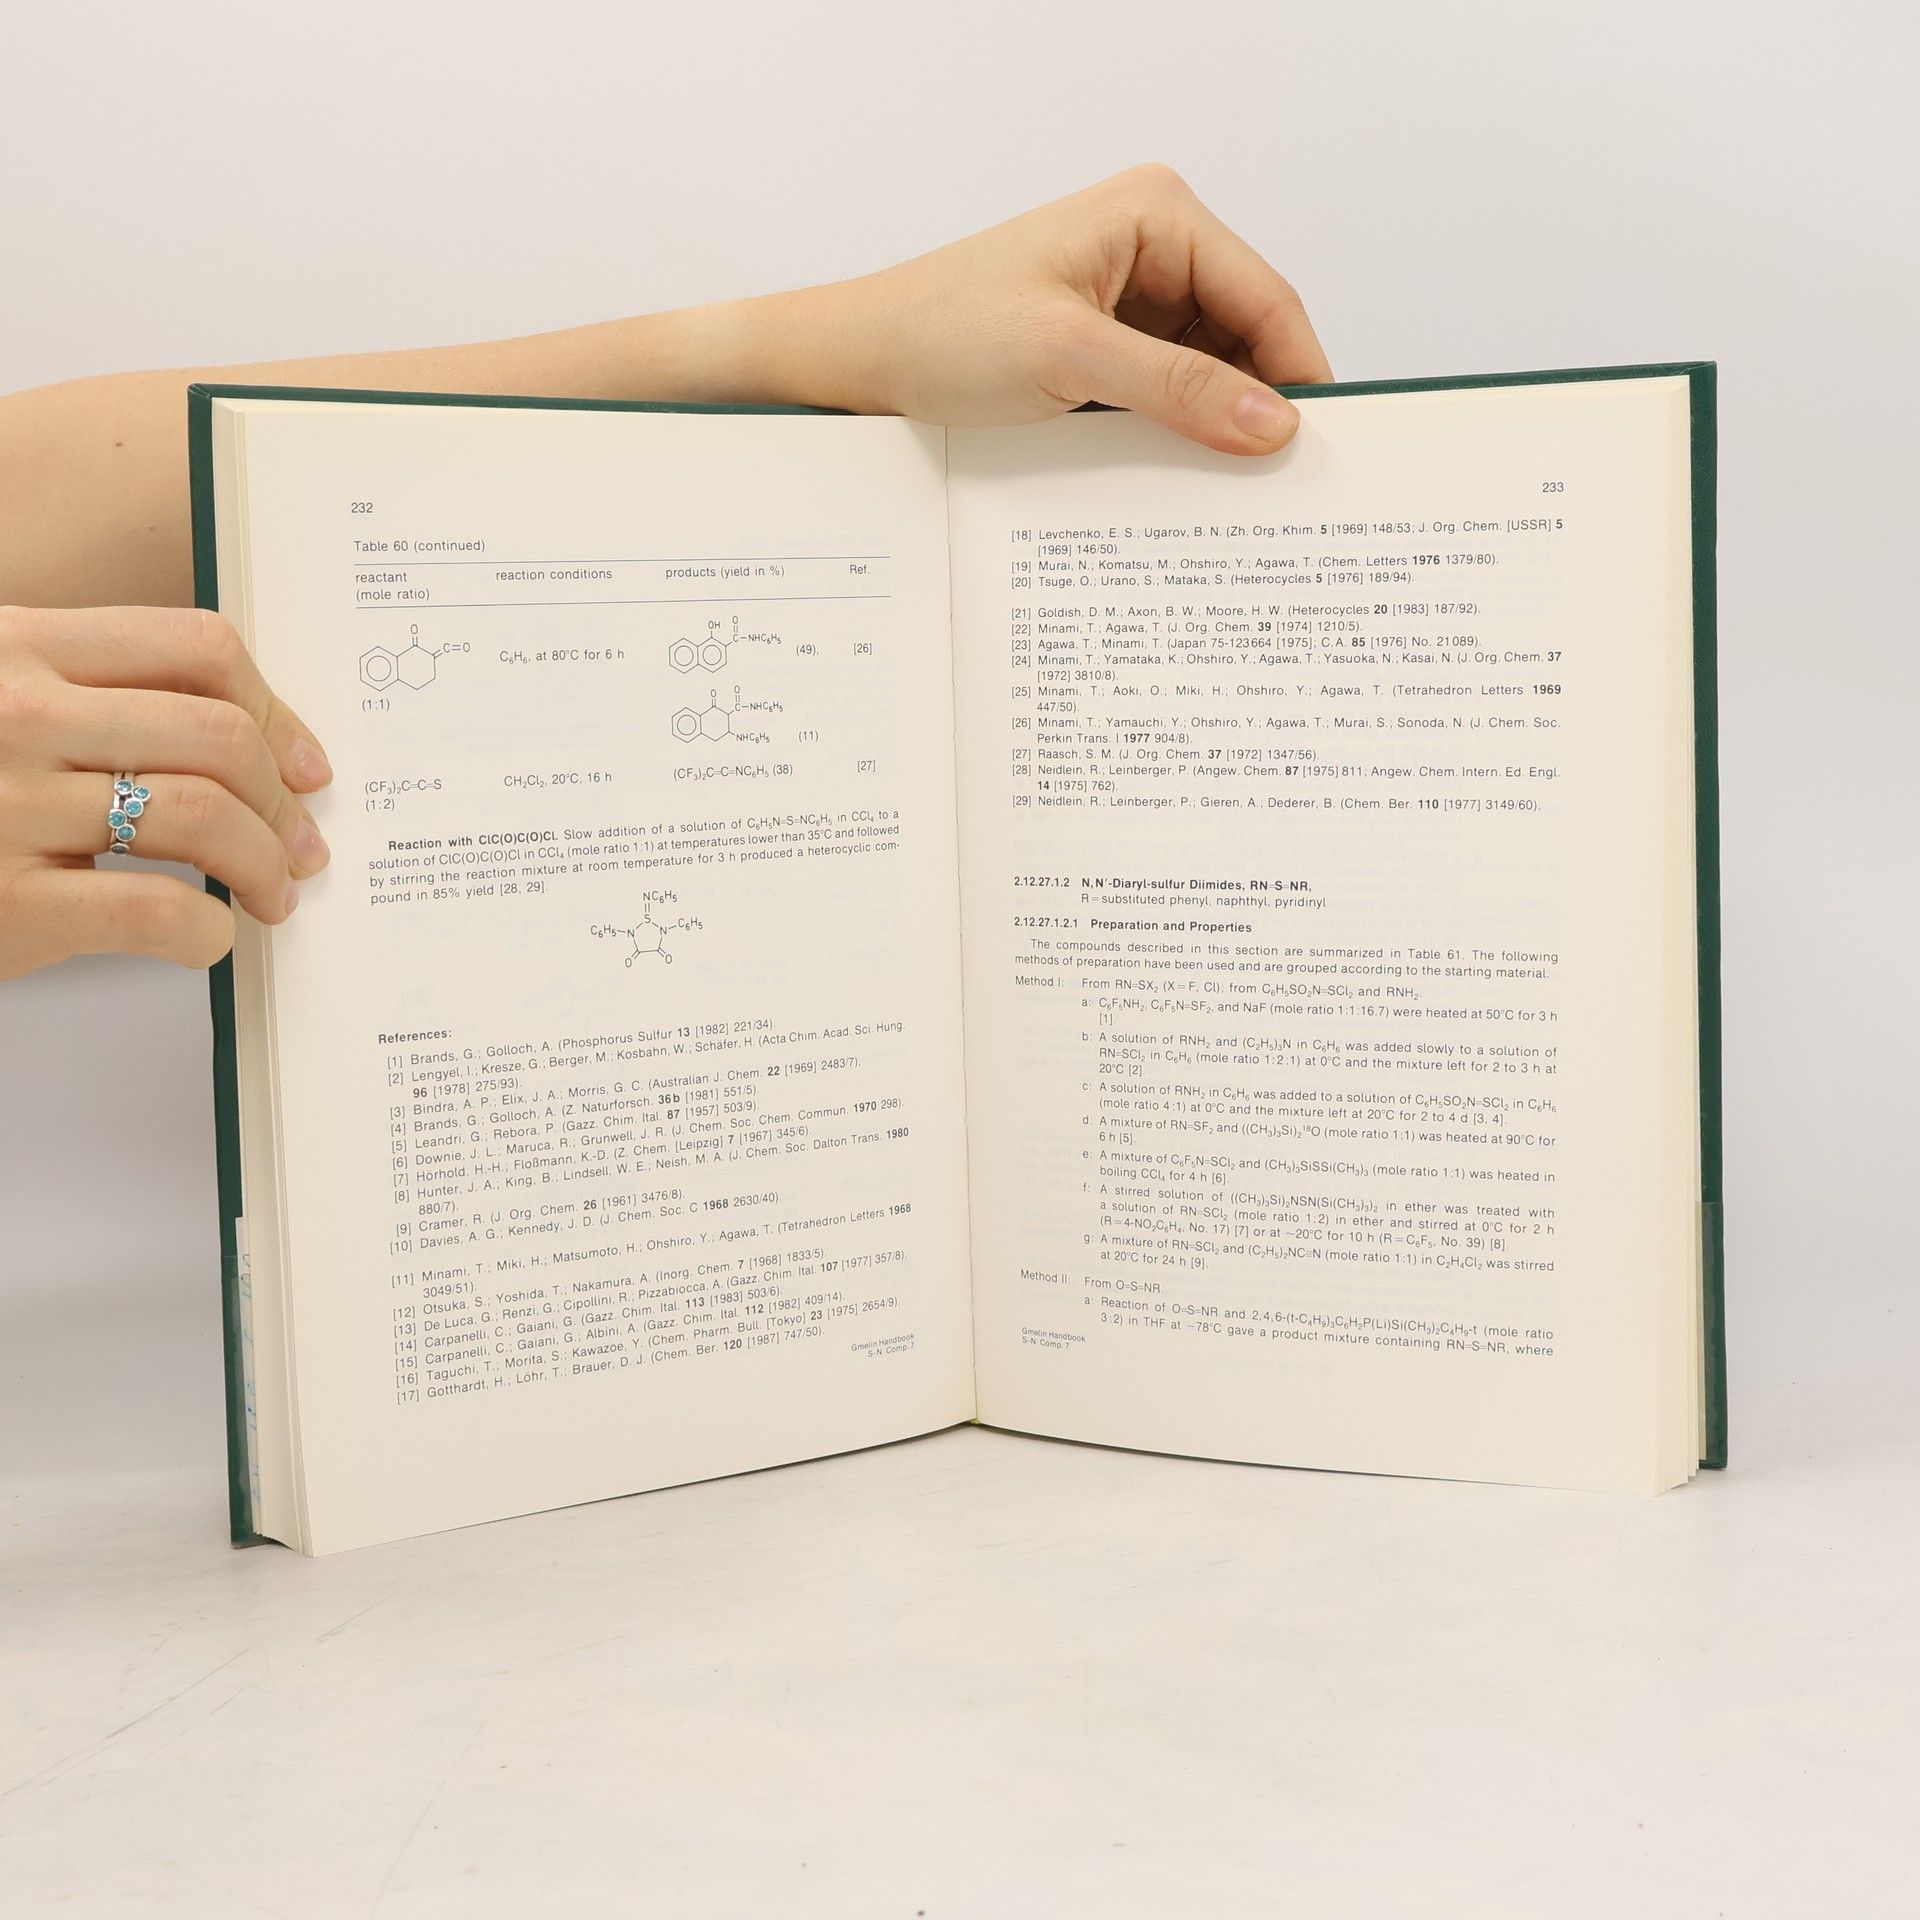 232
Table 60 (continued)
reactant reaction conditions products (yield in %) Ref.
(mole ratio)
O
C=O
C₆H₆, at 80°C for 6 h
OH O
C–NHC₆H₅
(49), [26]
(1:1)
O O
C–NHC₆H₅
NHC₆H₅ (11)
(CF₃)₂C=C=S CH₂Cl₂, 20°C, 16 h (CF₃)₂C=C=NC₆H₅ (38) [27]
(1:2)
Reaction with ClC(O)C(O)Cl. Slow addition of a solution of C₆H₅N=S=NC₆H₅ in CCl₄ to a
solution of ClC(O)C(O)Cl in CCl₄ (mole ratio 1:1) at temperatures lower than 35°C and followed
by stirring the reaction mixture at room temperature for 3 h produced a heterocyclic com-
pound in 85% yield [28, 29].
NC₆H₅
S
C₆H₅–N N–C₆H₅
O O
References:
[1] Brands, G.; Golloch, A. (Phosphorus Sulfur 13 [1982] 221/34).
[2] Lengyel, I.; Kresze, G.; Berger, M.; Kosbahn, W.; Schäfer, H. (Acta Chim. Acad. Sci. Hung.
96 [1978] 275/93).
[3] Bindra, A. P.; Elix, J. A.; Morris, G. C. (Australian J. Chem. 22 [1969] 2483/7).
[4] Brands, G.; Golloch, A. (Z. Naturforsch. 36b [1981] 551/5).
[5] Leandri, G.; Rebora, P. (Gazz. Chim. Ital. 87 [1957] 503/9).
[6] Downie, J. L.; Maruca, R.; Grunwell, J. R. (J. Chem. Soc. Chem. Commun. 1970 298).
[7] Hörhold, H.-H.; Floßmann, K.-D. (Z. Chem. [Leipzig] 7 [1967] 345/6).
[8] Hunter, J. A.; King, B.; Lindsell, W. E.; Neish, M. A. (J. Chem. Soc. Dalton Trans. 1980
880/7).
[9] Cramer, R. (J. Org. Chem. 26 [1961] 3476/8).
[10] Davies, A. G.; Kennedy, J. D. (J. Chem. Soc. C 1968 2630/40).
[11] Minami, T.; Miki, H.; Matsumoto, H.; Ohshiro, Y.; Agawa, T. (Tetrahedron Letters 1968
3049/51).
[12] Otsuka, S.; Yoshida, T.; Nakamura, A. (Inorg. Chem. 7 [1968] 1833/5).
[13] De Luca, G.; Renzi, G.; Cipollini, R.; Pizzabiocca, A. (Gazz. Chim. Ital. 107 [1977] 357/8).
[14] Carpanelli, C.; Gaiani, G. (Gazz. Chim. Ital. 113 [1983] 503/6).
[15] Carpanelli, C.; Gaiani, G.; Albini, A. (Gazz. Chim. Ital. 112 [1982] 409/14).
[16] Taguchi, T.; Morita, S.; Kawazoe, Y. (Chem. Pharm. Bull. [Tokyo] 23 [1975] 2654/9).
[17] Gotthardt, H.; Löhr, T.; Brauer, D. J. (Chem. Ber. 120 [1987] 747/50).
Gmelin Handbook
S-N Comp. 7
233
[18] Levchenko, E. S.; Ugarov, B. N. (Zh. Org. Khim. 5 [1969] 148/53; J. Org. Chem. [USSR] 5
[1969] 146/50).
[19] Murai, N.; Komatsu, M.; Ohshiro, Y.; Agawa, T. (Chem. Letters 1976 1379/80).
[20] Tsuge, O.; Urano, S.; Mataka, S. (Heterocycles 5 [1976] 189/94).
[21] Goldish, D. M.; Axon, B. W.; Moore, H. W. (Heterocycles 20 [1983] 187/92).
[22] Minami, T.; Agawa, T. (J. Org. Chem. 39 [1974] 1210/5).
[23] Agawa, T.; Minami, T. (Japan 75-123664 [1975]; C.A. 85 [1976] No. 21089).
[24] Minami, T.; Yamataka, K.; Ohshiro, Y.; Agawa, T.; Yasuoka, N.; Kasai, N. (J. Org. Chem. 37
[1972] 3810/8).
[25] Minami, T.; Aoki, O.; Miki, H.; Ohshiro, Y.; Agawa, T. (Tetrahedron Letters 1969
447/50).
[26] Minami, T.; Yamauchi, Y.; Ohshiro, Y.; Agawa, T.; Murai, S.; Sonoda, N. (J. Chem. Soc.
Perkin Trans. I 1977 904/8).
[27] Raasch, S. M. (J. Org. Chem. 37 [1972] 1347/56).
[28] Neidlein, R.; Leinberger, P. (Angew. Chem. 87 [1975] 811; Angew. Chem. Intern. Ed. Engl.
14 [1975] 762).
[29] Neidlein, R.; Leinberger, P.; Gieren, A.; Dederer, B. (Chem. Ber. 110 [1977] 3149/60).
2.12.27.1.2 N,N′-Diaryl-sulfur Diimides, RN=S=NR,
R = substituted phenyl, naphthyl, pyridinyl
2.12.27.1.2.1 Preparation and Properties
The compounds described in this section are summarized in Table 61. The following
methods of preparation have been used and are grouped according to the starting material.
Method I: From RN=SX₂ (X = F, Cl); from C₆H₅SO₂N=SCl₂ and RNH₂.
a: C₆F₅NH₂, C₆F₅N=SF₂, and NaF (mole ratio 1:1:16.7) were heated at 50°C for 3 h
[1].
b: A solution of RNH₂ and (C₂H₅)₃N in C₆H₆ was added slowly to a solution of
RN=SCl₂ in C₆H₆ (mole ratio 1:2:1) at 0°C and the mixture left for 2 to 3 h at
20°C [2].
c: A solution of RNH₂ in C₆H₆ was added to a solution of C₆H₅SO₂N=SCl₂ in C₆H₆
(mole ratio 4:1) at 0°C and the mixture left at 20°C for 2 to 4 d [3, 4].
d: A mixture of RN=SF₂ and ((CH₃)₃Si)₂¹⁸O (mole ratio 1:1) was heated at 90°C for
6 h [5].
e: A mixture of C₆F₅N=SCl₂ and (CH₃)₃SiSSi(CH₃)₃ (mole ratio 1:1) was heated in
boiling CCl₄ for 4 h [6].
f: A stirred solution of ((CH₃)₃Si)₂NSN(Si(CH₃)₃)₂ in ether was treated with
a solution of RN=SCl₂ (mole ratio 1:2) in ether and stirred at 0°C for 2 h
(R = 4-NO₂C₆H₄, No. 17) [7] or at ~20°C for 10 h (R = C₆F₅, No. 39) [8].
g: A mixture of RN=SCl₂ and (C₂H₅)₂NC≡N (mole ratio 1:1) in C₂H₄Cl₂ was stirred
at 20°C for 24 h [9].
Method II: From O=S=NR.
a: Reaction of O=S=NR and 2,4,6-(t-C₄H₉)₃C₆H₂P(Li)Si(CH₃)₂C₄H₉-t (mole ratio
3:2) in THF at −78°C gave a product mixture containing RN=S=NR, where
Gmelin Handbook
S-N Comp. 7